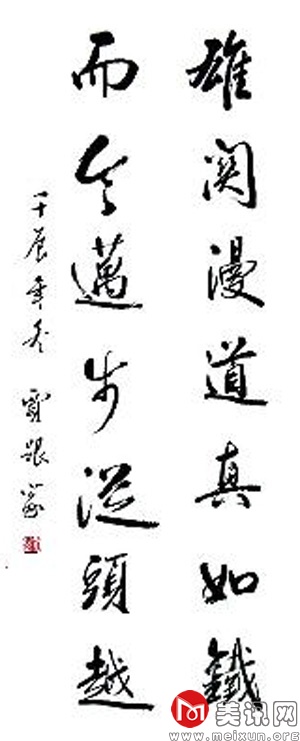 雄关漫道真如鐵
而今邁步從頭越
壬辰年冬
美讯网
www.meixun.org